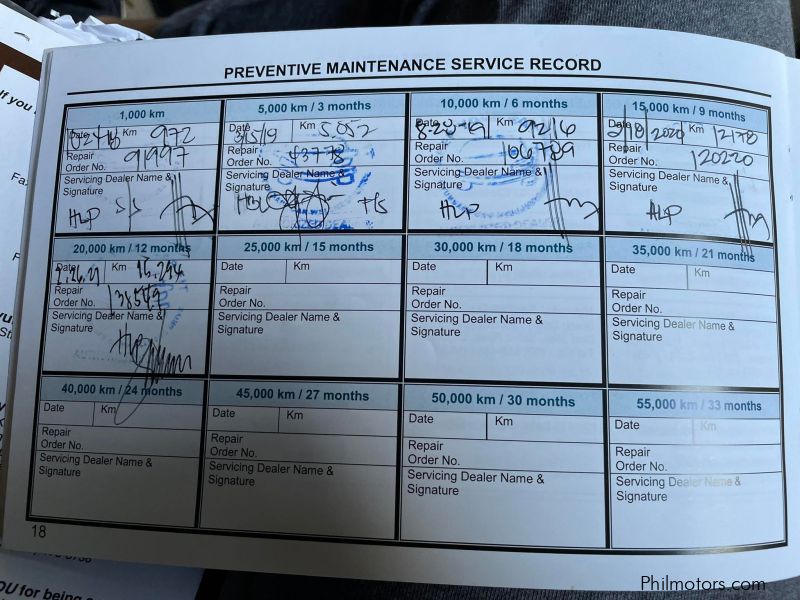 If you
PREVENTIVE MAINTENANCE SERVICE RECORD
1,000 km
Date Km 972
Repair
Order No. 91997
Servicing Dealer Name &
Signature
HLP
5,000 km / 3 months
Date 3/5/19 Km 5,052
Repair
Order No.
Servicing Dealer Name &
Signature
10,000 km / 6 months
Date Km 9216
Repair
Order No. 106789
Servicing Dealer Name &
Signature
HLP
15,000 km / 9 months
Date Km 12178
Repair
Order No. 120220
Servicing Dealer Name &
Signature
HLP
20,000 km / 12 months
Date Km
Repair
Order No.
Servicing Dealer Name &
Signature
HLP
25,000 km / 15 months
Date Km
Repair
Order No.
Servicing Dealer Name &
Signature
30,000 km / 18 months
Date Km
Repair
Order No.
Servicing Dealer Name &
Signature
35,000 km / 21 months
Date Km
Repair
Order No.
Servicing Dealer Name &
Signature
40,000 km / 24 months
Date Km
Repair
Order No.
Servicing Dealer Name &
Signature
45,000 km / 27 months
Date Km
Repair
Order No.
Servicing Dealer Name &
Signature
50,000 km / 30 months
Date Km
Repair
Order No.
Servicing Dealer Name &
Signature
55,000 km / 33 months
Date Km
Repair
Order No.
Servicing Dealer Name &
Signature
18
OU for being
Philmotors.com